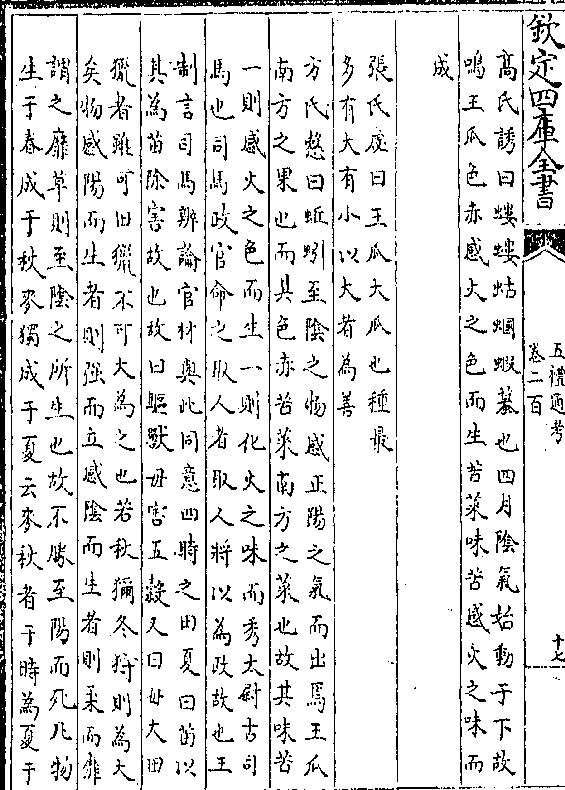 欽定四庫全書
五禮通考
卷二百
十七
高氏誘曰螻螻蛄蟈蝦蟇也四月陰氣始動于下故
鳴王瓜色赤感火之色而生苦菜味苦感火之味而
成
張氏虙曰王瓜大瓜也種最
多有大有小以大者為善
方氏慤曰蚯蚓至陰之物感正陽之氣而出焉王瓜
南方之果也而其色赤苦菜南方之菜也故其味苦
一則感火之色而生一則化火之味而秀太尉古司
馬也司馬政官命之取人者取人將以為政故也王
制言司馬辨論官材與此同意四時之田夏曰苗以
其為苗除害故也故曰驅獸毋害五穀又曰毋大田
獵者雖可田獵不可大為之也若秋獮冬狩則為大
矣物感陽而生者則强而立感陰而生者則柔而靡
謂之靡草則至陰之所生也故不勝至陽而死凡物
生于春成于秋麥獨成于夏云麥秋者于時為夏于